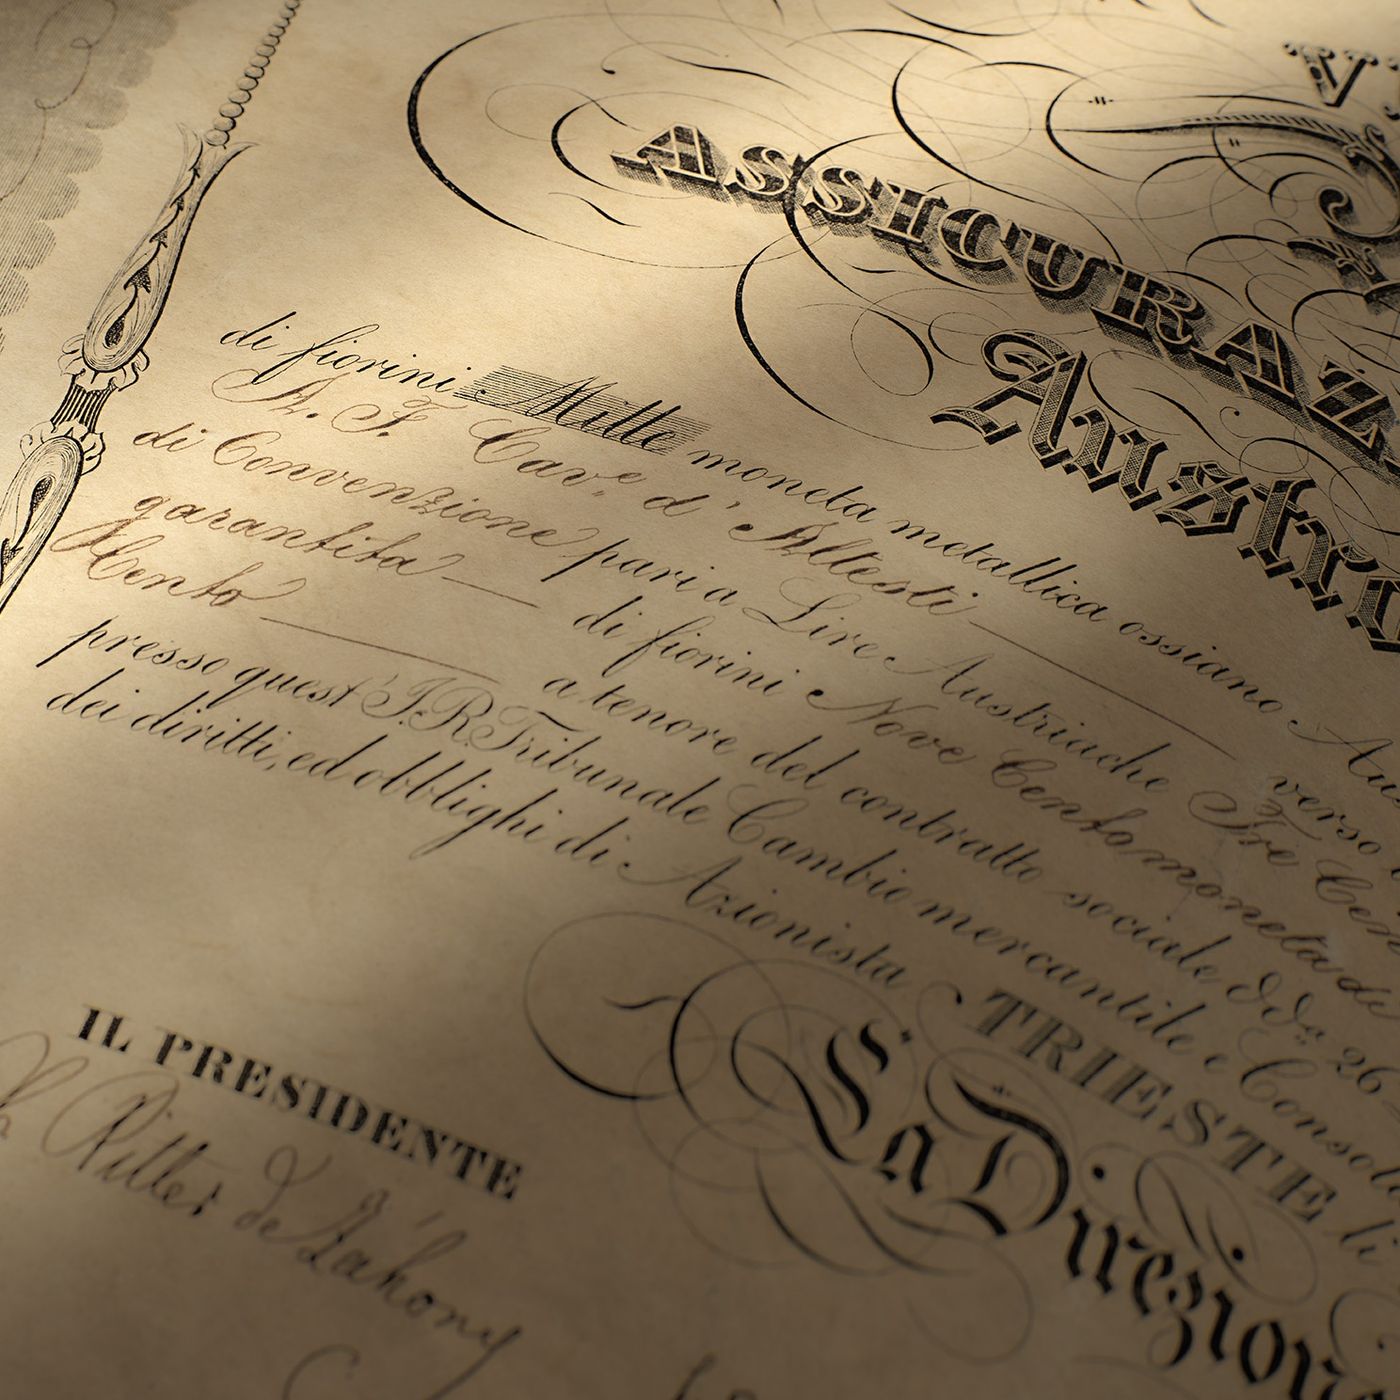 V
ASSICURAZ
Austro
di fiorini Mille moneta metallica ossiano Au
A. F. Cav.e d'Allesti verso
di Convenzione pari a Lire Austriache Tre Cen
garantita di fiorini Nove Cento moneta di
Cento a tenore del contratto sociale dd.o 26
presso quest'I.R. Tribunale Cambio mercantile e Consol
dei diritti, ed obblighi di Azionista
TRIESTE li
La Direzion
IL PRESIDENTE
Ritter de Záhony